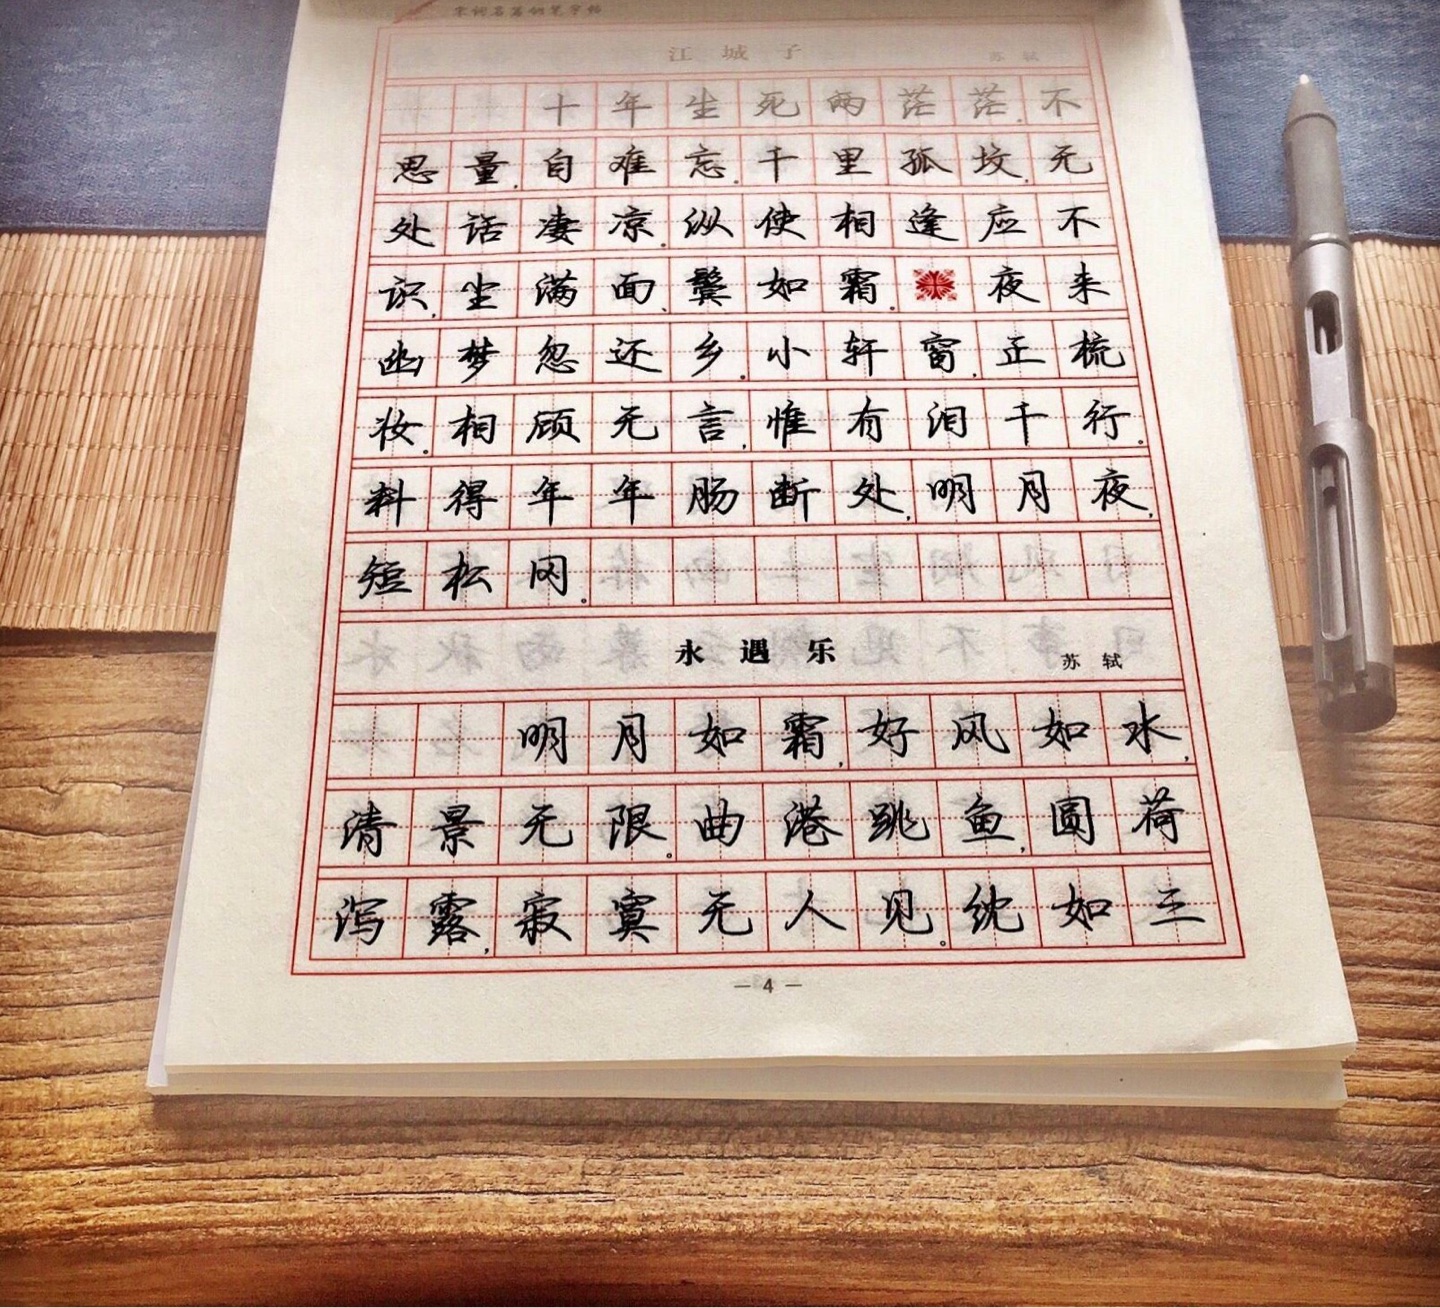 宋词名篇钢笔字帖
江城子 苏轼
十年生死两茫茫,不
思量,自难忘。千里孤坟,无
处话凄凉。纵使相逢应不
识,尘满面、鬓如霜。夜来
幽梦忽还乡。小轩窗,正梳
妆。相顾无言,惟有泪千行。
料得年年肠断处,明月夜,
短松冈。
永遇乐 苏轼
明月如霜,好风如水,
清景无限。曲港跳鱼,圆荷
泻露,寂寞无人见。紞如三
— 4 —